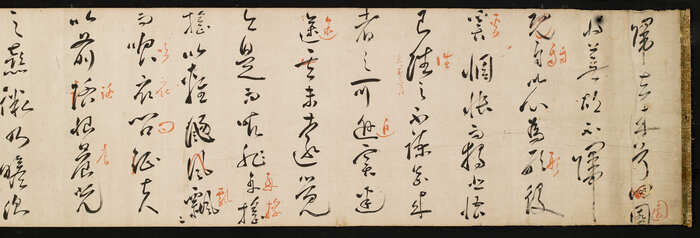 歸去來兮田園
將蕪胡不歸
既自以心為形役
奚惆悵而獨悲悟
已往之不諫知來
者之可追實迷
途其未遠覺
今是而昨非舟搖
搖以輕颺風飄
而吹衣問征夫
以前路恨晨光
之熹微乃瞻衡